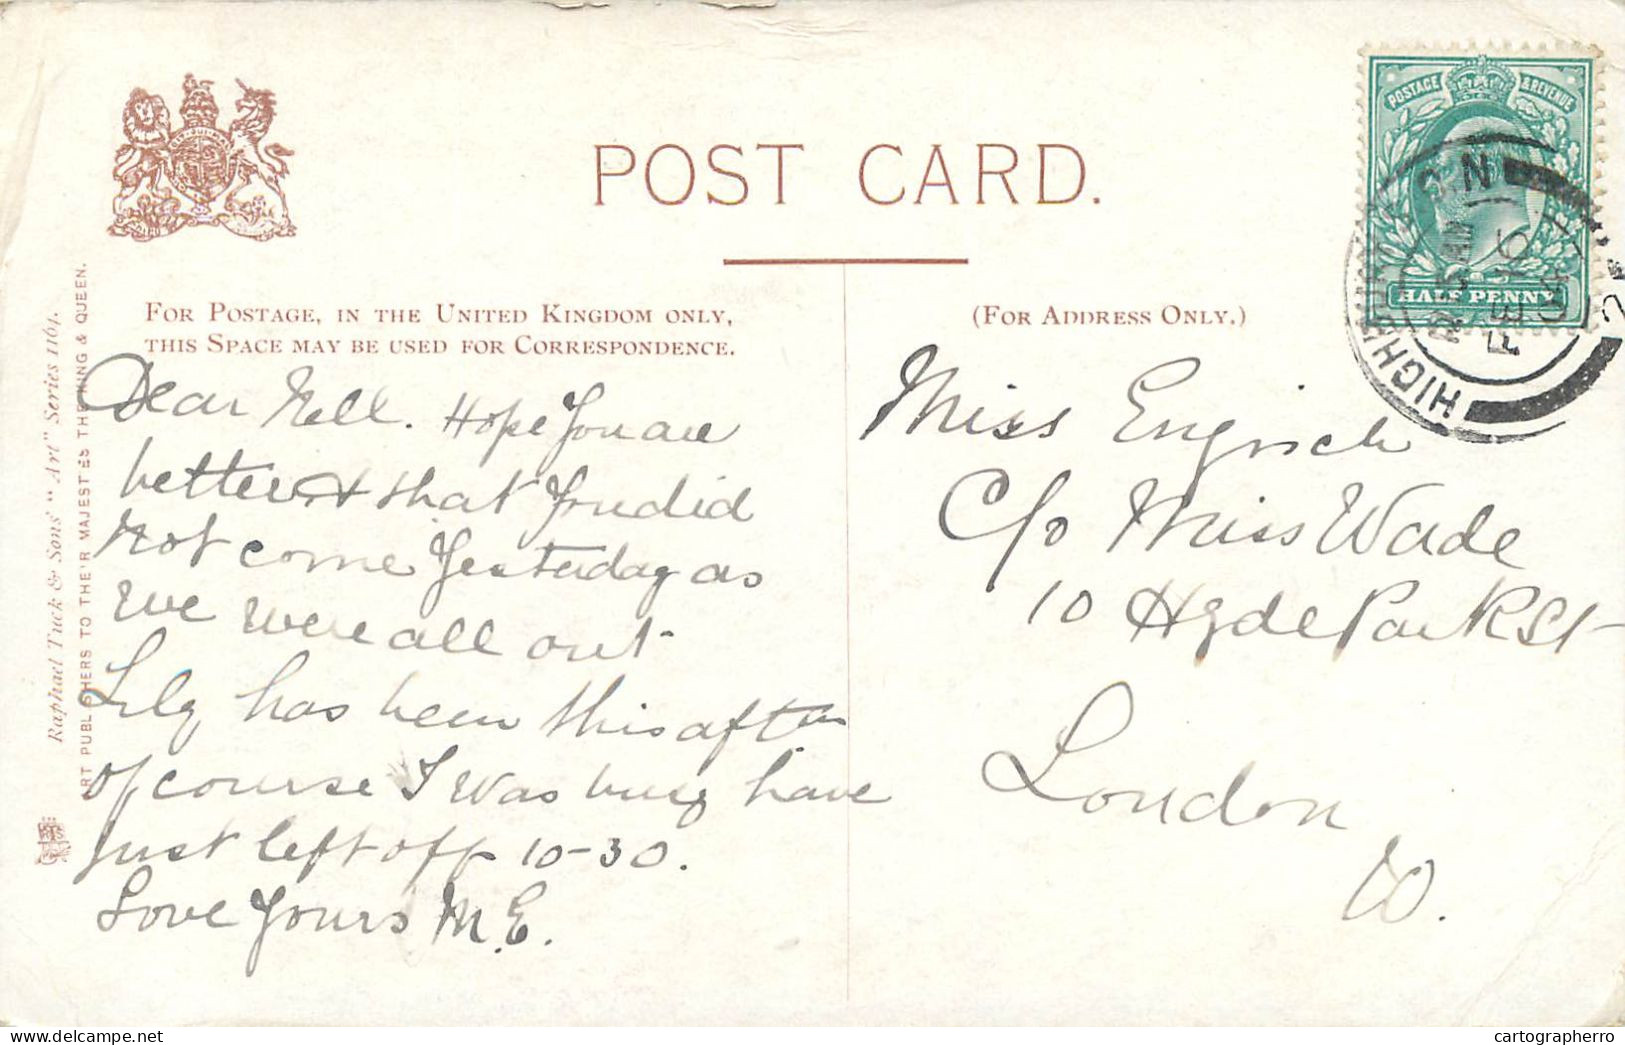 POST CARD.
POSTAGE & REVENUE
HALF PENNY
HIGHBURY
FE 16
04
N
FOR POSTAGE, IN THE UNITED KINGDOM ONLY,
THIS SPACE MAY BE USED FOR CORRESPONDENCE.
(FOR ADDRESS ONLY.)
Raphael Tuck & Sons' "Art" Series 1161.
ART PUBLISHERS TO THEIR MAJESTIES THE KING & QUEEN.
Dear Nell. Hope You are
better & that You did
not come Yesterday as
we were all out
Lily has been this aftn
of course I was busy have
just left off 10-30.
Love Yours M.E.
Miss
C/o Miss Wade
10 Hyde Park St
London
W.
cartographerro